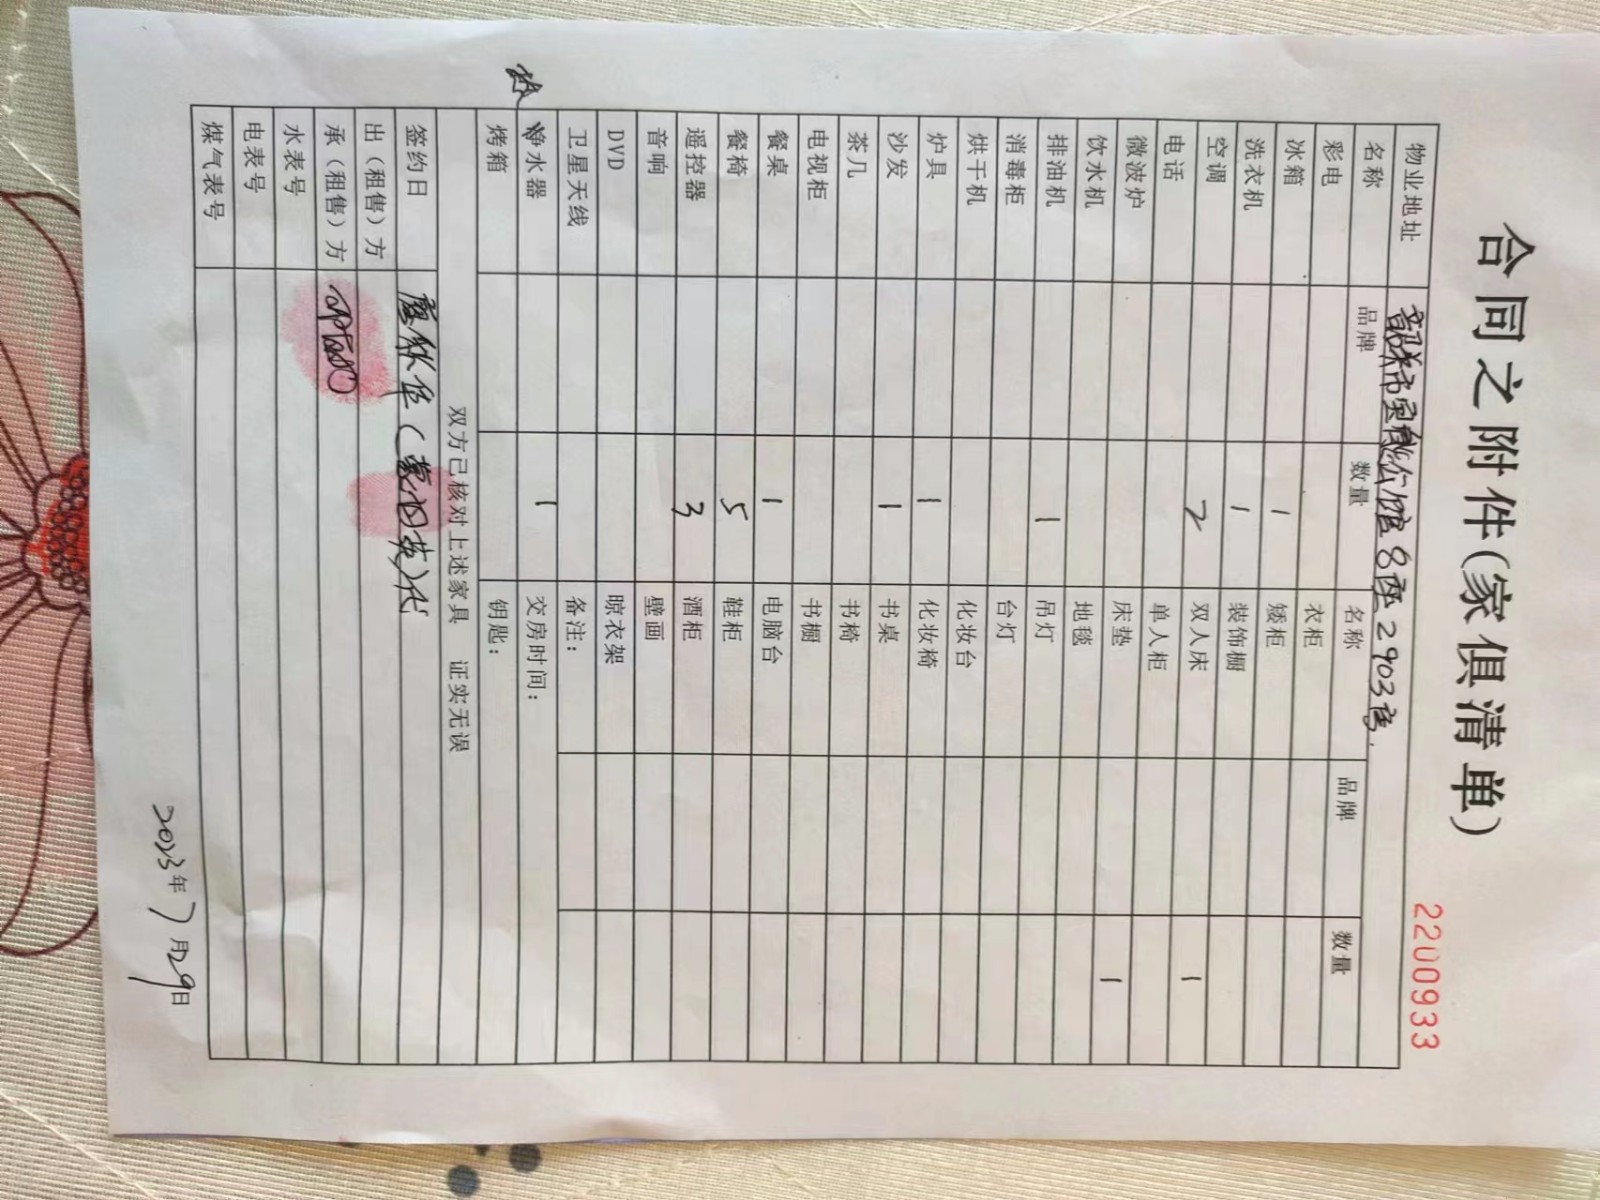 合同之附件(家俱清单)
2200933
物业地址 韶关市宝能公馆8座2903房.
名称 品牌 数量 名称 品牌 数量
彩电 衣柜
冰箱 1 矮柜
洗衣机 1 装饰橱
空调 2 双人床 1
电话 单人柜
微波炉 床垫 1
饮水机 地毯
排油机 1 吊灯
消毒柜 台灯
烘干机 化妆台
炉具 1 化妆椅
沙发 1 书桌
茶几 书椅
电视柜 书橱
餐桌 1 电脑台
餐椅 5 鞋柜
遥控器 3 酒柜
音响 壁画
DVD 晾衣架
卫星天线 备注:
热
净水器 1 交房时间:
烤箱 钥匙:
双方已核对上述家具 证实无误
签约日
出(租售)方
承(租售)方
水表号
电表号
煤气表号
2023年7月29日